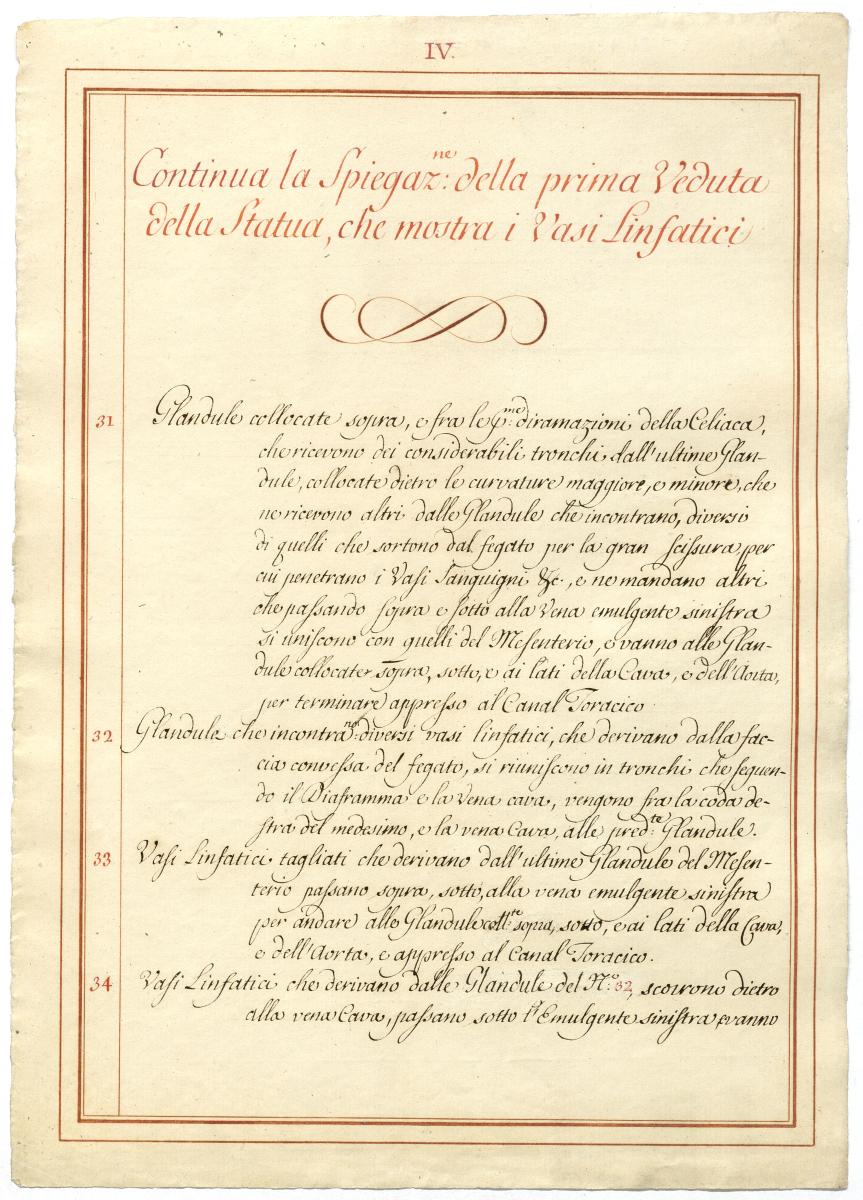 IV.
Continua la Spiegaz:ne della prima Veduta
della Statua, che mostra i Vasi Linfatici
31 Glandule collocate sopra, e fra le p:me diramazioni della Celiaca,
che ricevono dei considerabili tronchi dall'ultime Glan-
dule, collocate dietro le curvature maggiore, e minore, che
ne ricevono altri dalle Glandule che incontrano, diversi
di quelli che sortono dal fegato per la gran scissura, per
cui penetrano i Vasi Sanguigni &c., e ne mandano altri
che passando sopra e sotto alla Vena emulgente sinistra
si uniscono con quelli del Mesenterio, e vanno alle Glan-
dule collocate sopra, sotto, e ai lati della Cava, e dell'Aorta,
per terminare appresso al Canal Toracico.
32 Glandule che incontra:no diversi vasi linfatici, che derivano dalla fac-
cia convessa del fegato, si riuniscono in tronchi che seguen-
do il Diaframma e la Vena cava, vengono fra la coda de-
stra del medesimo, e la vena Cava, alle pred:te Glandule.
33 Vasi Linfatici tagliati che derivano dall'ultime Glandule del Mesen-
terio passano sopra, sotto, alla vena emulgente sinistra
per andare alle Glandule coll:te sopra, sotto, e ai lati della Cava,
e dell'Aorta, e appresso al Canal Toracico.
34 Vasi Linfatici che derivano dalle Glandule del N:o 32, scorrono dietro
alla vena Cava, passano sotto l' Emulgente sinistra e vanno